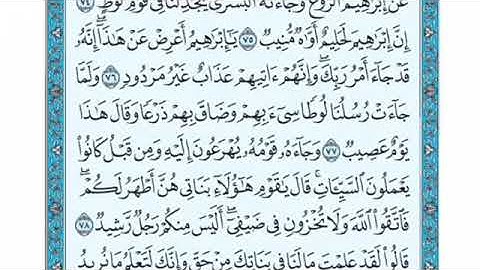 عَنْ إِبْرَٰهِيمَ ٱلرَّوْعُ وَجَآءَتْهُ ٱلْبُشْرَىٰ يُجَٰدِلُنَا فِى قَوْمِ لُوطٍ ٧٤
إِنَّ إِبْرَٰهِيمَ لَحَلِيمٌ أَوَّٰهٌ مُّنِيبٌ ٧٥ يَٰٓإِبْرَٰهِيمُ أَعْرِضْ عَنْ هَٰذَآ إِنَّهُۥ
قَدْ جَآءَ أَمْرُ رَبِّكَ وَإِنَّهُمْ ءَاتِيهِمْ عَذَابٌ غَيْرُ مَرْدُودٍ ٧٦ وَلَمَّا
جَآءَتْ رُسُلُنَا لُوطًا سِىٓءَ بِهِمْ وَضَاقَ بِهِمْ ذَرْعًا وَقَالَ هَٰذَا
يَوْمٌ عَصِيبٌ ٧٧ وَجَآءَهُۥ قَوْمُهُۥ يُهْرَعُونَ إِلَيْهِ وَمِن قَبْلُ كَانُوا۟
يَعْمَلُونَ ٱلسَّيِّـَٔاتِ قَالَ يَٰقَوْمِ هَٰٓؤُلَآءِ بَنَاتِى هُنَّ أَطْهَرُ لَكُمْ
فَٱتَّقُوا۟ ٱللَّهَ وَلَا تُخْزُونِ فِى ضَيْفِىٓ أَلَيْسَ مِنكُمْ رَجُلٌ رَّشِيدٌ ٧٨
قَالُوا۟ لَقَدْ عَلِمْتَ مَا لَنَا فِى بَنَاتِكَ مِنْ حَقٍّ وَإِنَّكَ لَتَعْلَمُ مَا نُرِيدُ